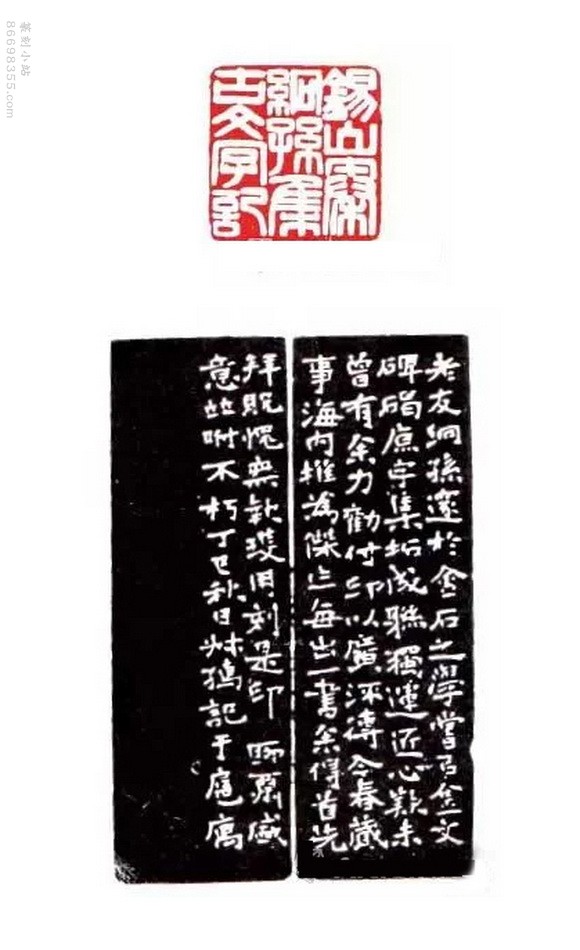 錫山秦
絅孫集
古文字記
老友絅孫邃於金石之學嘗以金文
碑碣原字集拓成聯獨運匠心歎未
曾有余力勸付印以廣流傳今春蕆
事海內推為傑作每出一書余得首先
拜貺愧無用刻是印聊感
意並附不朽丁巳秋日記于滬寓
篆刻小站
86698355.com